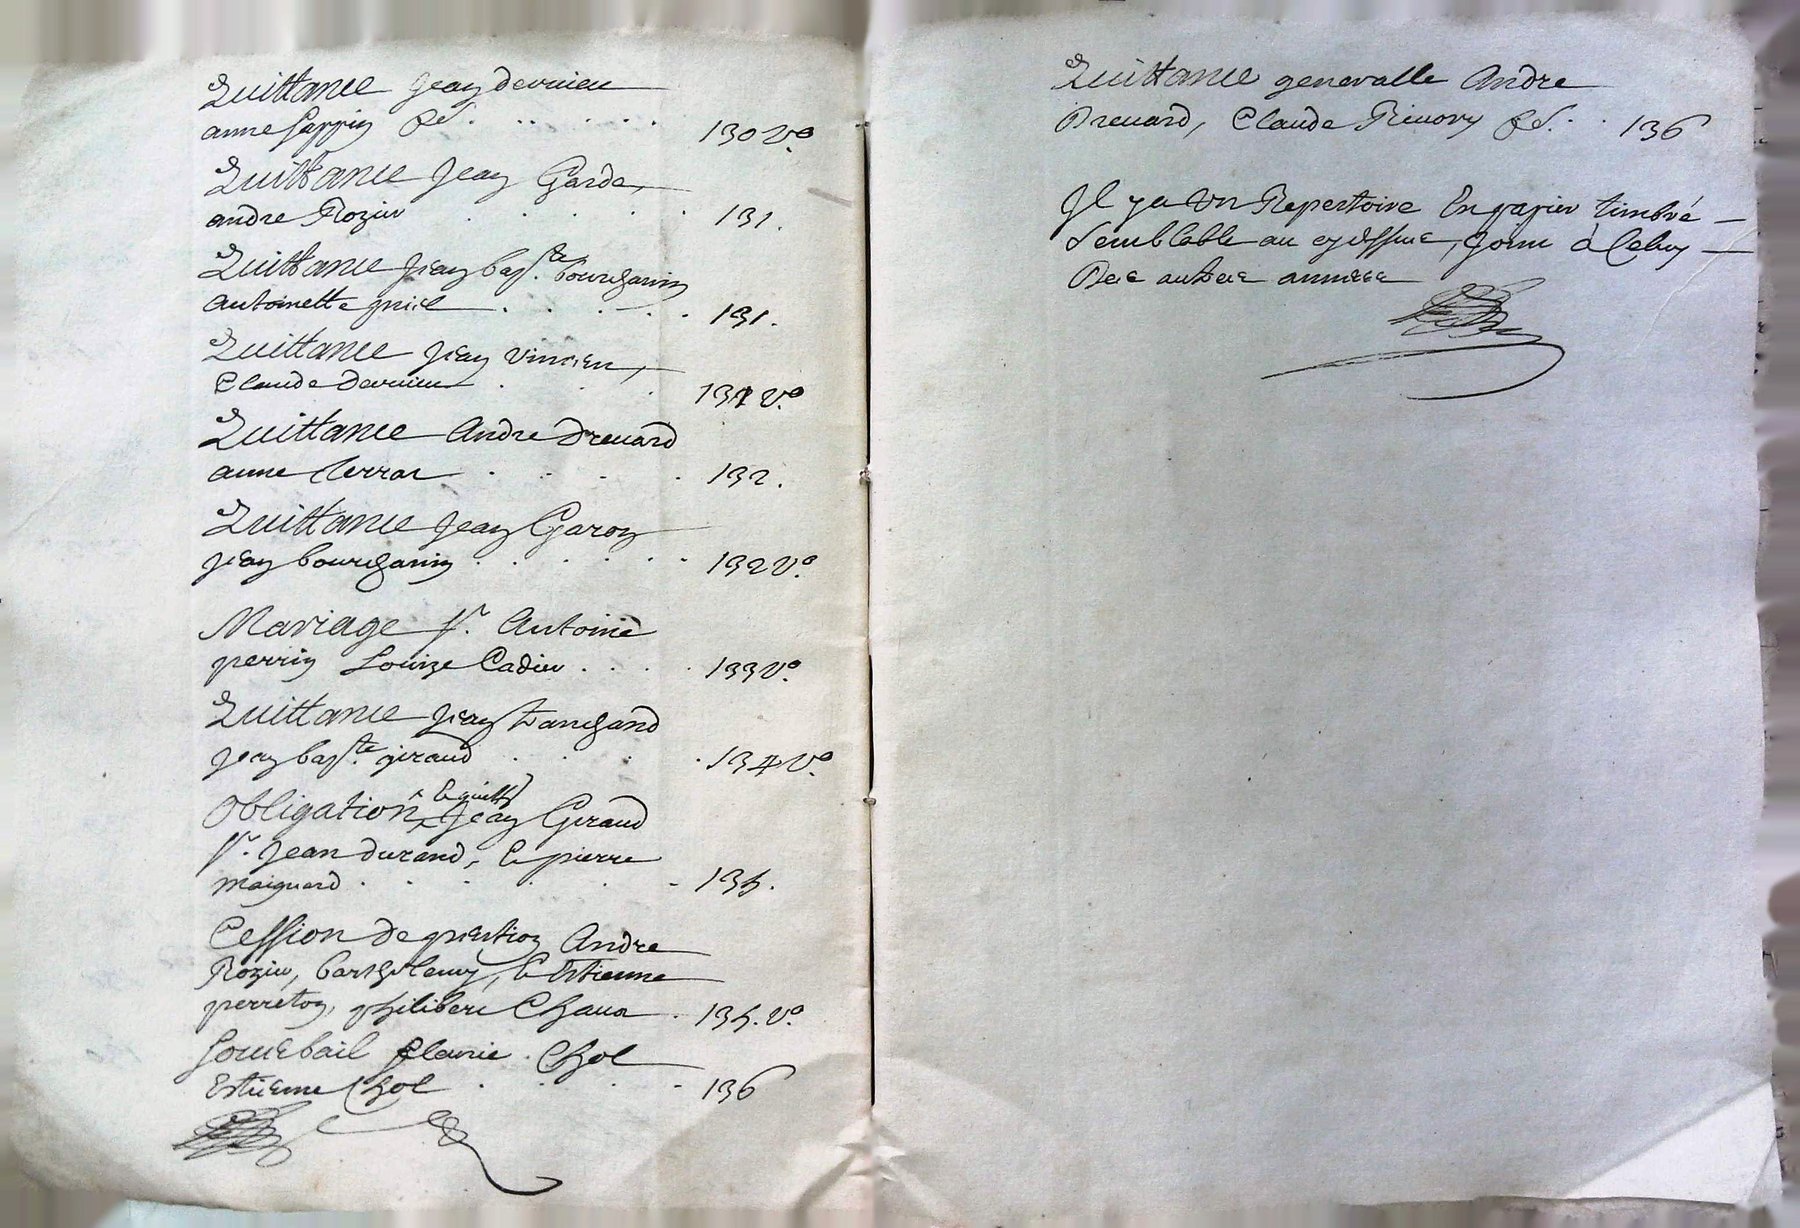 Quittance Jean Dervieu
anne Pappin &c. 130 v°.
Quittance Jean Garde,
andre Rozier 131.
Quittance Jean bap.te bourganin
antoinette 131.
Quittance Jean Vincien,
Claude Dervieu 131 v°.
Quittance Andre Drevard
anne Terrat 132.
Quittance Jean Garon
jean bourganin 132 v°.
Mariage s.r Antoine
perrin Louize Cadier 133 v°.
Quittance Jean
Jean bap.te giraud 134 v°.
Obligation, et quitt.
Jean Giraud
s.r Jean durand, & pierre
maignard 135.
Cession de Andre
Rozier, barthelemy, & Estienne
perreton, philibert Chava 135. v°.
Souebail Chol
Estienne Chol 136
Quittance generalle Andre
Drevard, Claude &c. 136
Il y a un Repertoire En papier timbré
Semblable au cy dessus, joint à Celuy
Des autres années